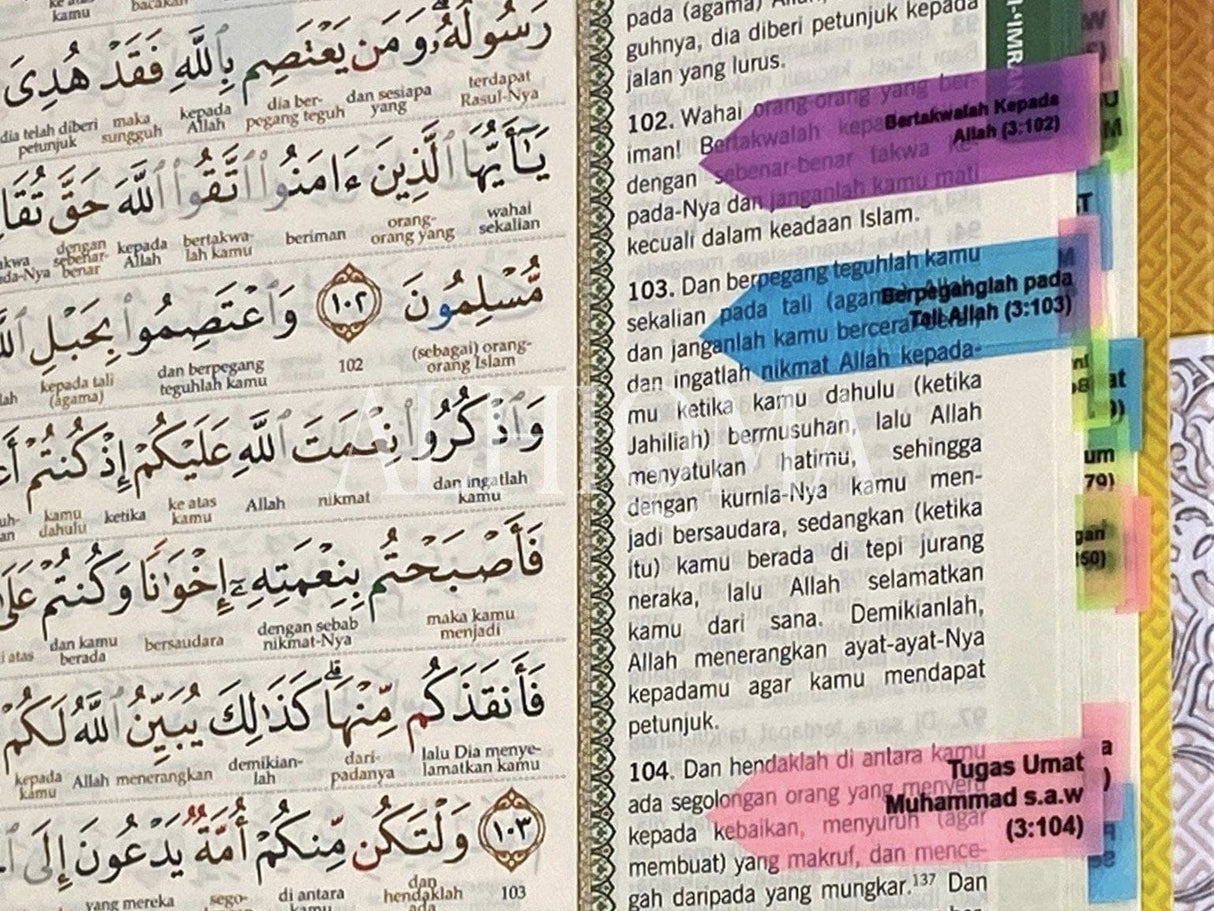 kamu
bacakan
رَسُولُهُۥ وَمَن يَعْتَصِم بِٱللَّهِ فَقَدْ هُدِىَ
dia telah diberi petunjuk
maka sungguh
kepada Allah
dia ber-pegang teguh
dan sesiapa yang
terdapat Rasul-Nya
يَـٰٓأَيُّهَا ٱلَّذِينَ ءَامَنُوا۟ ٱتَّقُوا۟ ٱللَّهَ حَقَّ
dengan sebenar-benar
kepada Allah
bertakwa-lah kamu
beriman
orang-orang yang
wahai sekalian
مُّسْلِمُونَ ١٠٢ وَٱعْتَصِمُوا۟ بِحَبْلِ
kepada tali (agama)
dan berpegang teguhlah kamu
102
(sebagai) orang-orang Islam
وَٱذْكُرُوا۟ نِعْمَتَ ٱللَّهِ عَلَيْكُمْ إِذْ كُنتُمْ
kamu dahulu
ketika
ke atas kamu
Allah
nikmat
dan ingatlah kamu
فَأَصْبَحْتُم بِنِعْمَتِهِۦٓ إِخْوَٰنًا وَكُنتُمْ
dan kamu berada
bersaudara
dengan sebab nikmat-Nya
maka kamu menjadi
فَأَنقَذَكُم مِّنْهَا ۗ كَذَٰلِكَ يُبَيِّنُ ٱللَّهُ لَكُمْ
kepada kamu
Allah menerangkan
demikian-lah
dari-padanya
lalu Dia menye-lamatkan kamu
١٠٣ وَلْتَكُن مِّنكُمْ أُمَّةٌ يَدْعُونَ إِلَى
yang mereka
sego-
di antara kamu
dan hendaklah ada
103
pada (agama) Allah,
guhnya, dia diberi petunjuk kepada
jalan yang lurus.
102. Wahai orang-orang yang ber-
iman! Bertakwalah
dengan sebenar-benar takwa ke-
pada-Nya dan janganlah kamu mati
kecuali dalam keadaan Islam.
Bertakwalah Kepada
Allah (3:102)
103. Dan berpegang teguhlah kamu
sekalian pada tali
dan janganlah kamu bercerai-berai,
dan ingatlah nikmat Allah kepada-
mu ketika kamu dahulu (ketika
Jahiliah) bermusuhan, lalu Allah
menyatukan hatimu, sehingga
dengan kurnia-Nya kamu men-
jadi bersaudara, sedangkan (ketika
itu) kamu berada di tepi jurang
neraka, lalu Allah selamatkan
kamu dari sana. Demikianlah,
Allah menerangkan ayat-ayat-Nya
kepadamu agar kamu mendapat
petunjuk.
Berpeganglah pada
Tali Allah (3:103)
104. Dan hendaklah di antara kamu
ada segolongan orang yang menyeru
kepada kebaikan, menyuruh (agar
membuat) yang makruf, dan mence-
gah daripada yang mungkar.¹³⁷ Dan
Tugas Umat
Muhammad s.a.w
(3:104)